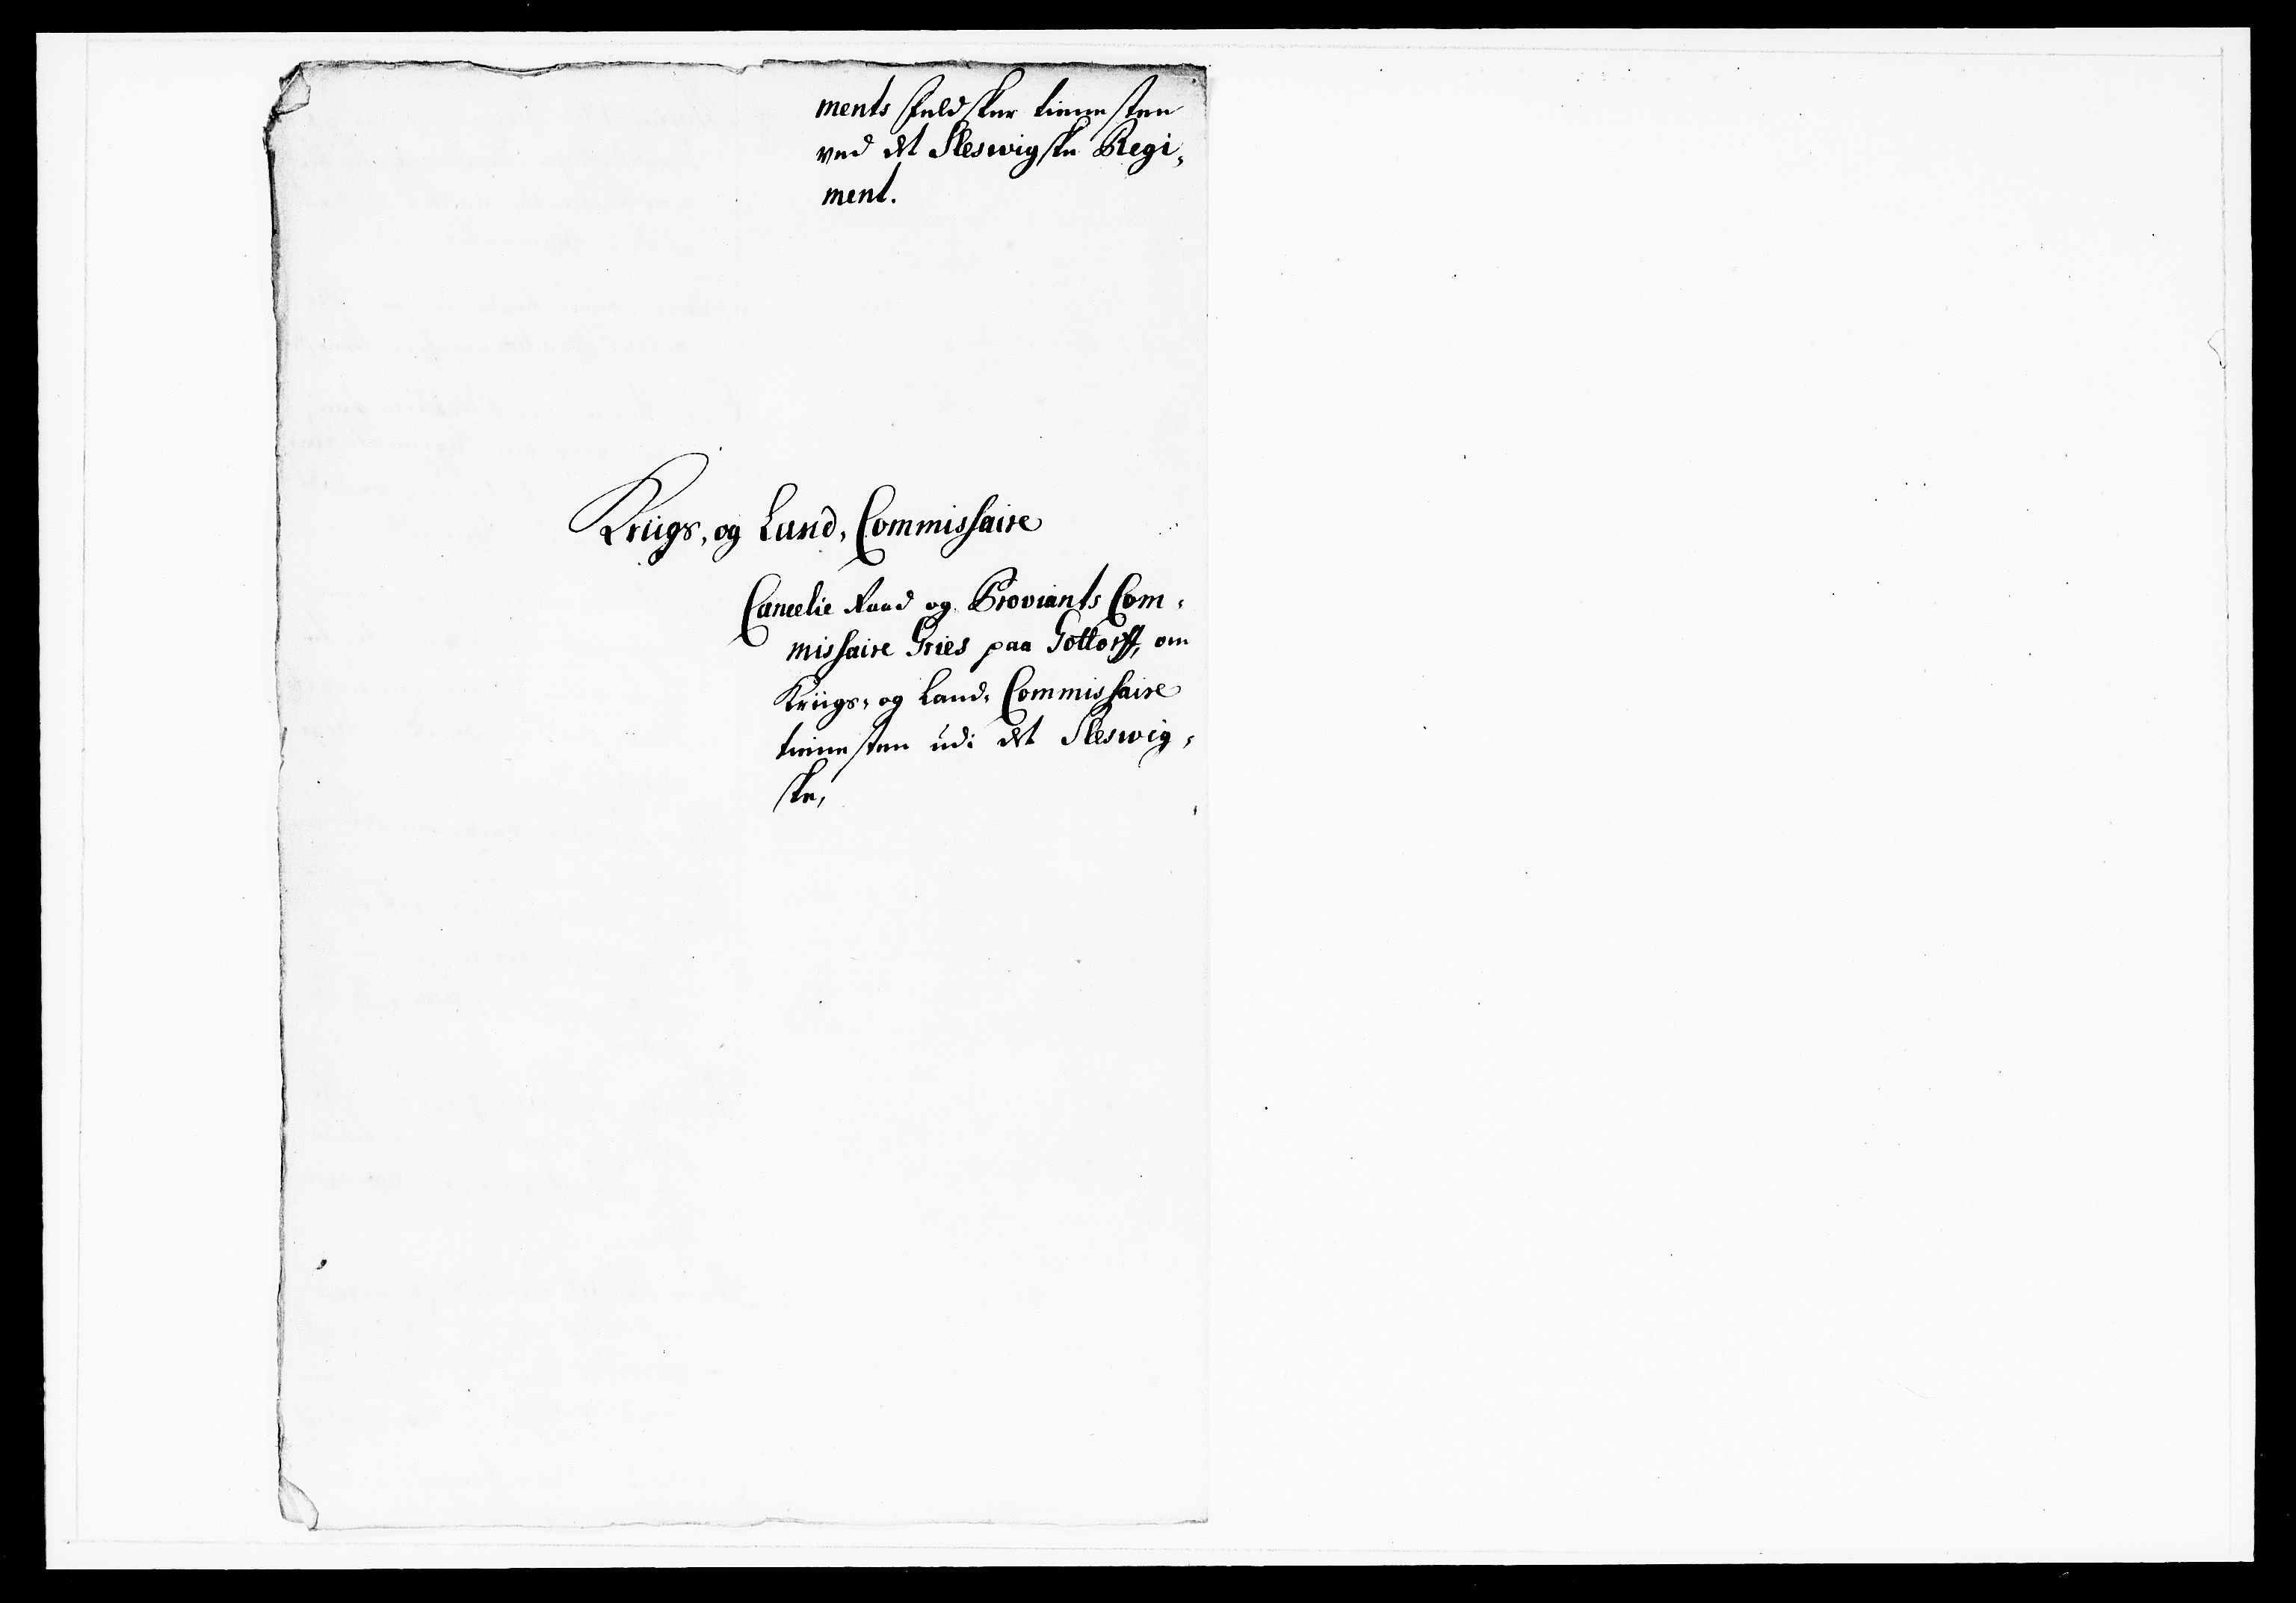 ments feldsker tienesten
ved det Sleswigske Regi-
ment.
Kriigs- og Land-Commissaire
Cancelie Raad og Proviants Com-
missaire Gries paa Gottorff, om
Kriigs- og Land-Commissaire
tienesten udi det Sleswig-
ske,